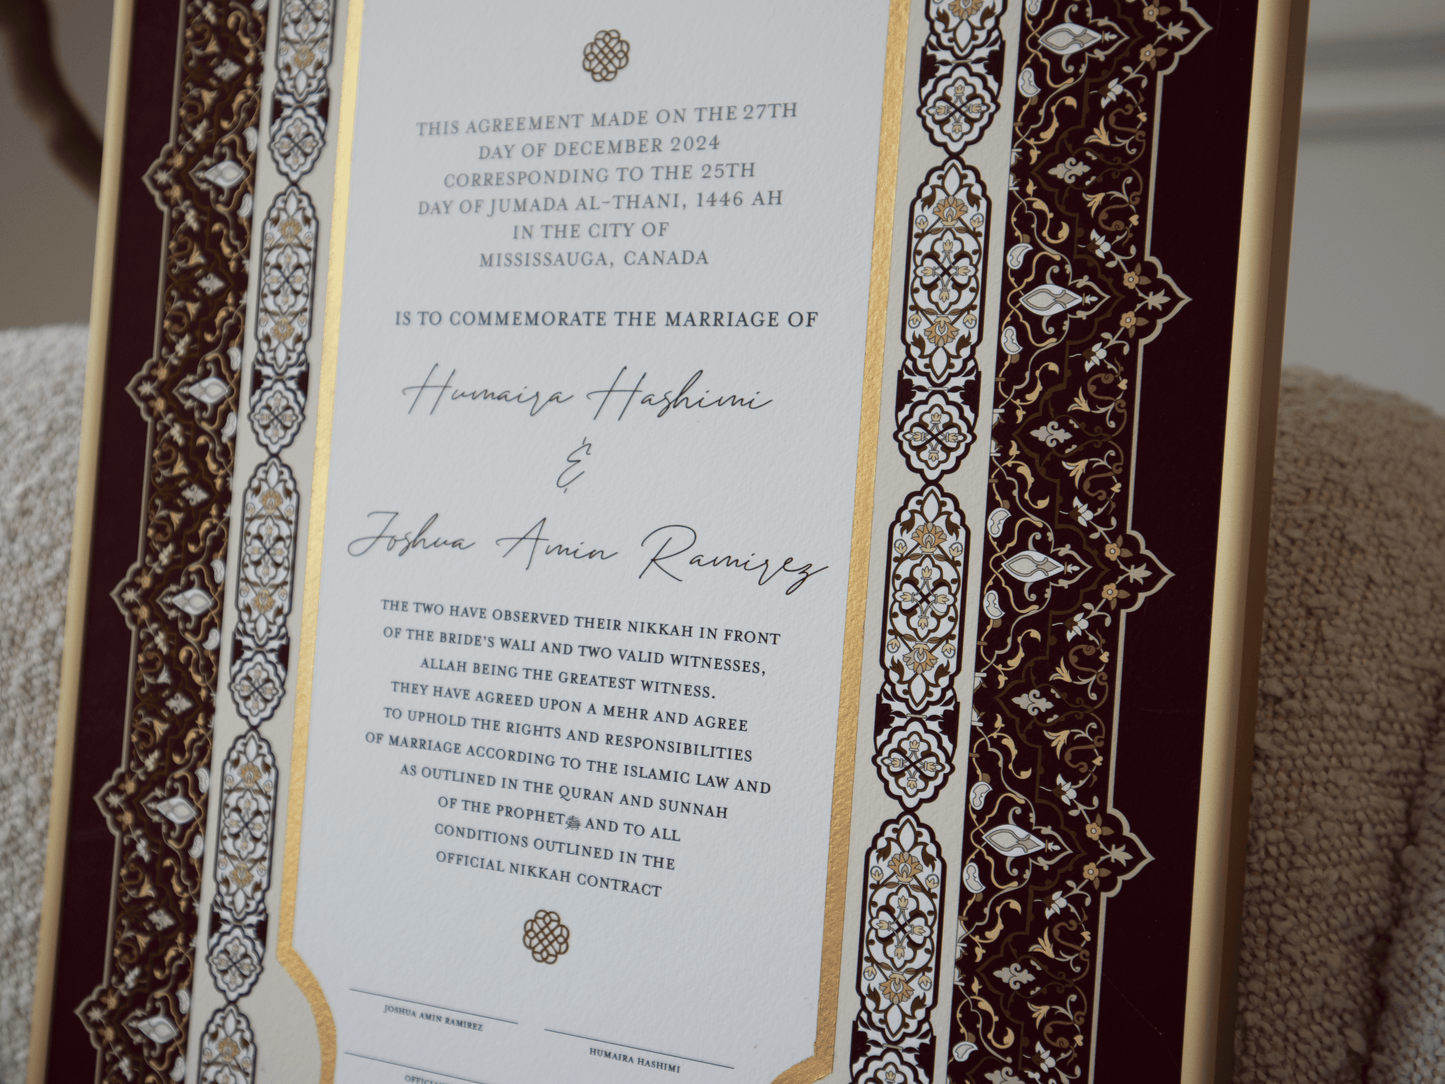 THIS AGREEMENT MADE ON THE 27TH
DAY OF DECEMBER 2024
CORRESPONDING TO THE 25TH
DAY OF JUMADA AL-THANI, 1446 AH
IN THE CITY OF
MISSISSAUGA, CANADA
IS TO COMMEMORATE THE MARRIAGE OF
Humaira Hashimi
&
Joshua Amin Ramirez
THE TWO HAVE OBSERVED THEIR NIKKAH IN FRONT
OF THE BRIDE'S WALI AND TWO VALID WITNESSES,
ALLAH BEING THE GREATEST WITNESS.
THEY HAVE AGREED UPON A MEHR AND AGREE
TO UPHOLD THE RIGHTS AND RESPONSIBILITIES
OF MARRIAGE ACCORDING TO THE ISLAMIC LAW AND
AS OUTLINED IN THE QURAN AND SUNNAH
OF THE PROPHET ﷺ AND TO ALL
CONDITIONS OUTLINED IN THE
OFFICIAL NIKKAH CONTRACT
JOSHUA AMIN RAMIREZ
HUMAIRA HASHIMI